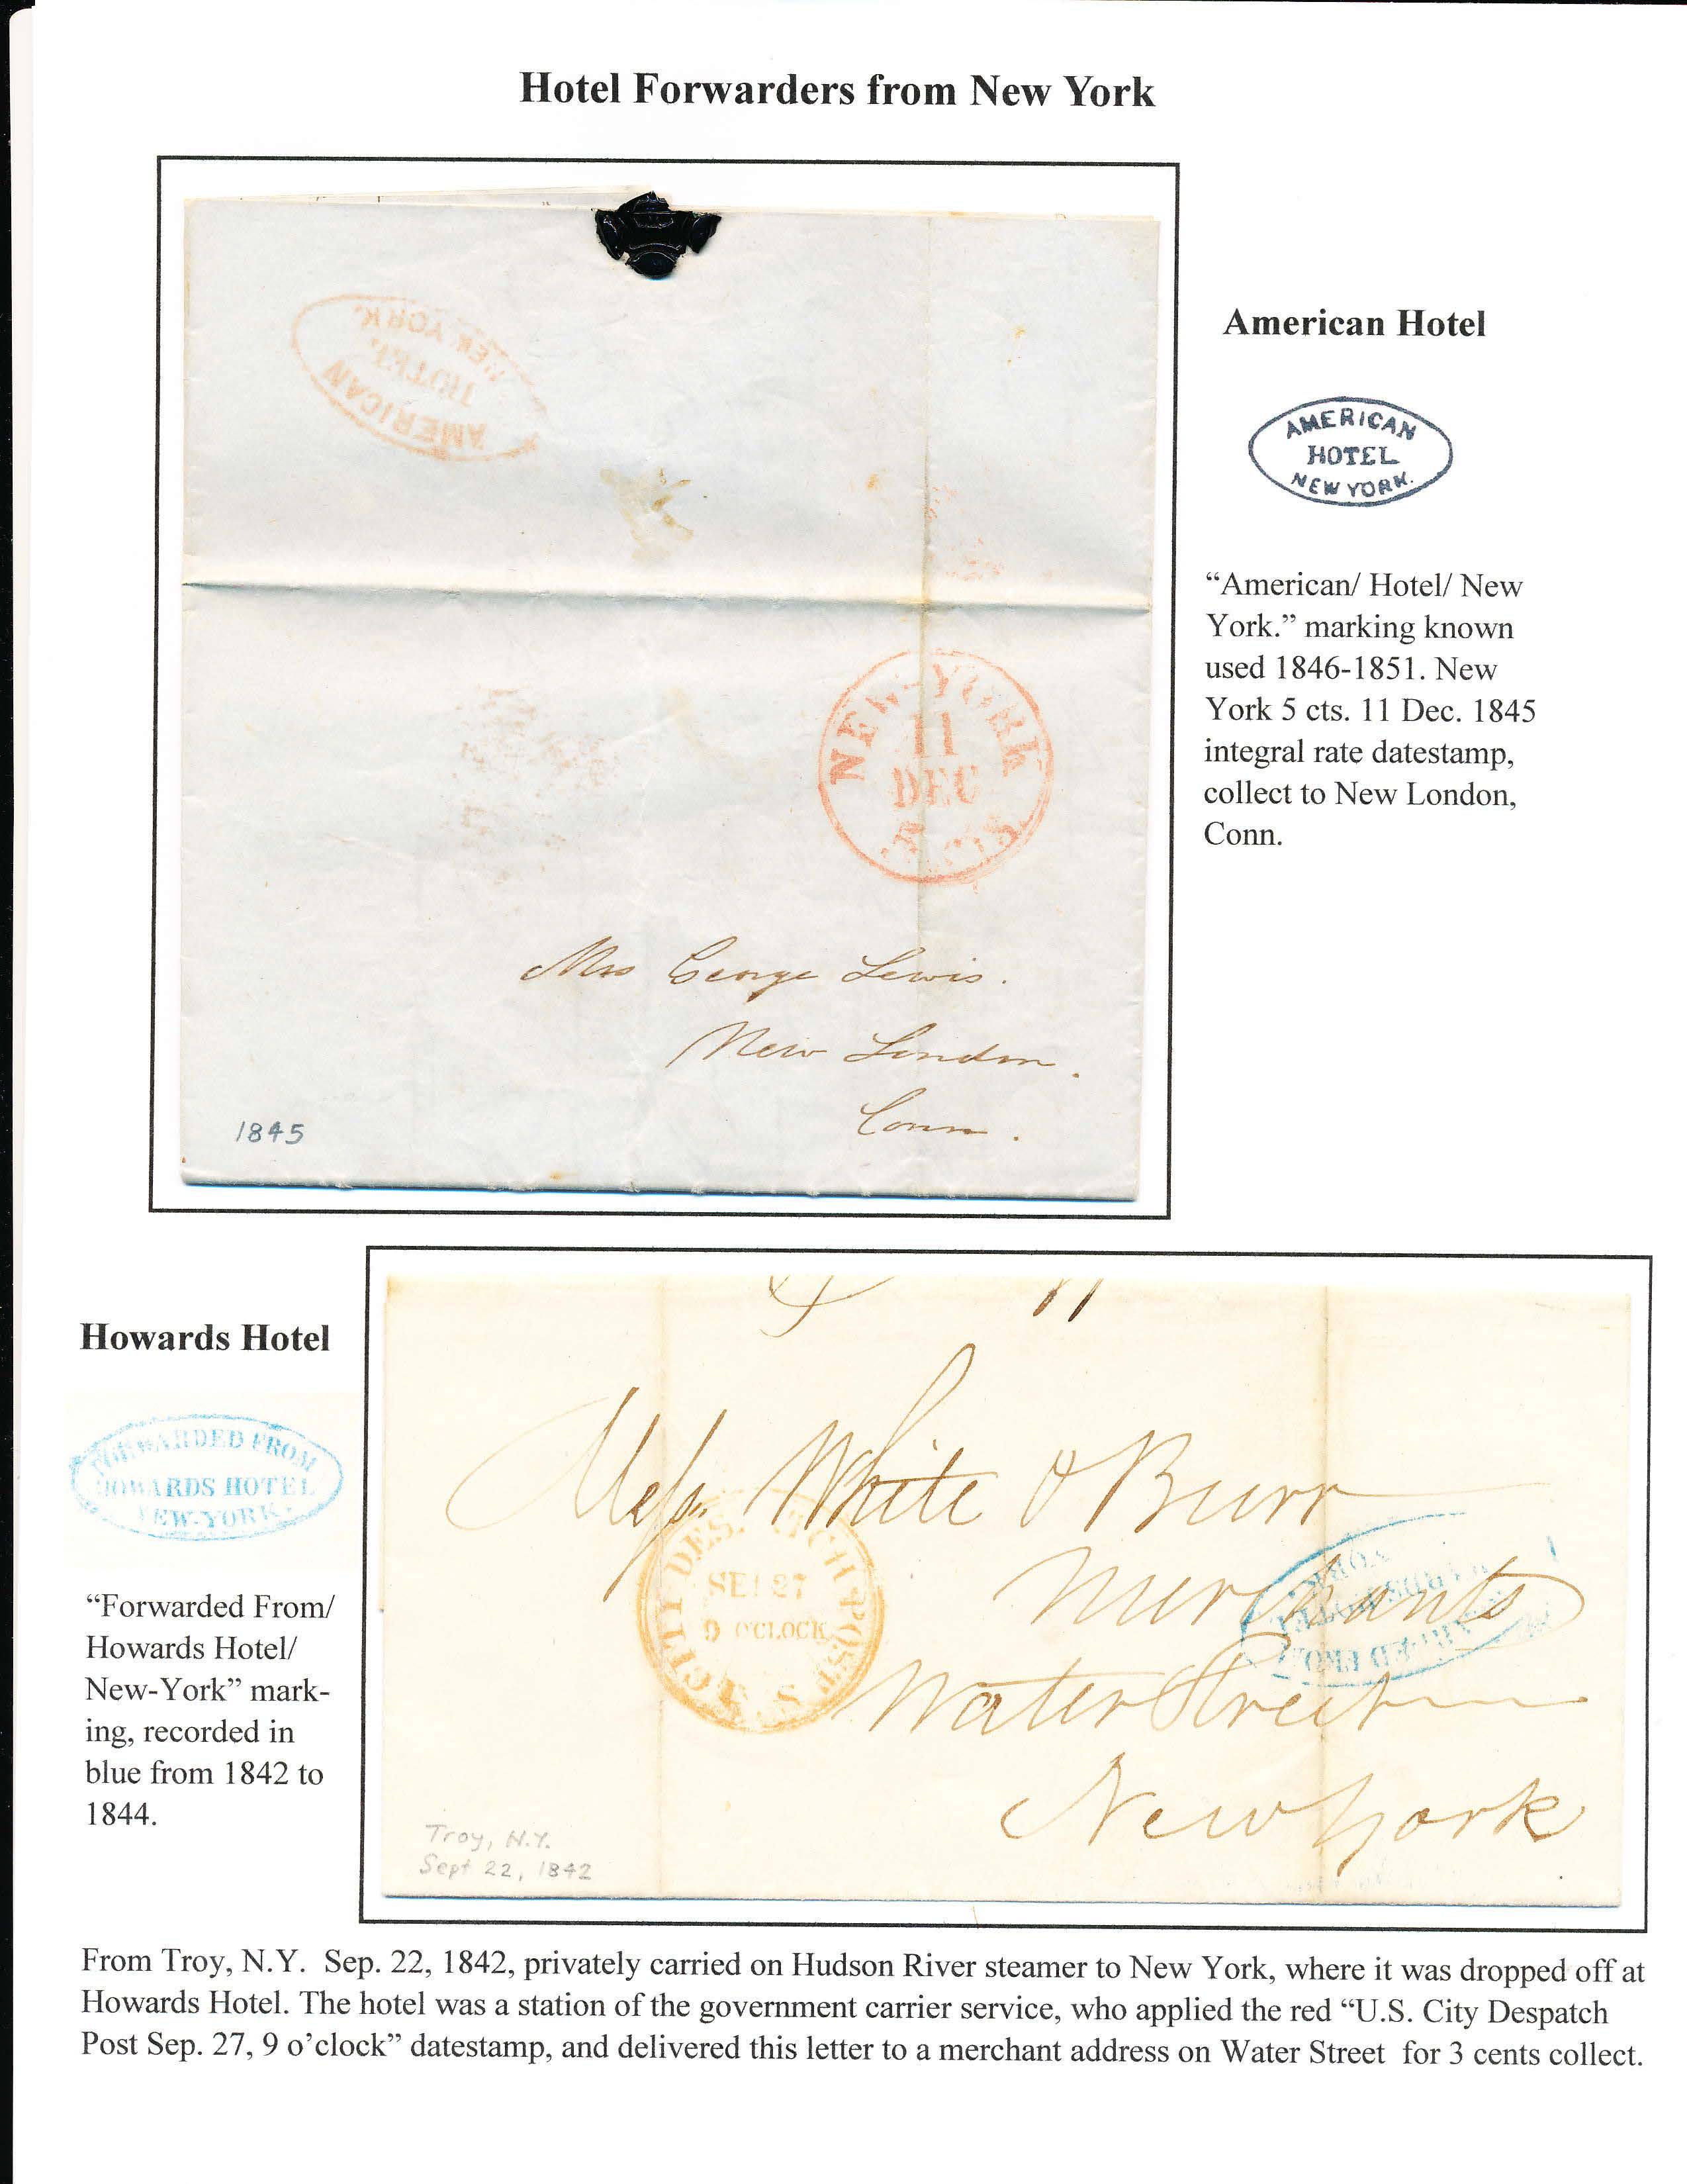 Hotel Forwarders from New York
AMERICAN
HOTEL
NEW YORK.
NEW-YORK
11
DEC
5 cts
Mrs George Lewis.
New London.
Conn.
1845
American Hotel
AMERICAN
HOTEL
NEW YORK.
“American/ Hotel/ New
York.” marking known
used 1846-1851. New
York 5 cts. 11 Dec. 1845
integral rate datestamp,
collect to New London,
Conn.
Howards Hotel
FORWARDED FROM
HOWARDS HOTEL
NEW-YORK.
“Forwarded From/
Howards Hotel/
New-York” mark-
ing, recorded in
blue from 1842 to
1844.
Mess. White & Burr
Merchants
Water Street
New York
U.S. CITY DESPATCH POST
SEP 27
9 O'CLOCK
FORWARDED FROM
HOWARDS HOTEL
YORK
Troy, N.Y.
Sept 22, 1842
From Troy, N.Y. Sep. 22, 1842, privately carried on Hudson River steamer to New York, where it was dropped off at
Howards Hotel. The hotel was a station of the government carrier service, who applied the red “U.S. City Despatch
Post Sep. 27, 9 o’clock” datestamp, and delivered this letter to a merchant address on Water Street for 3 cents collect.